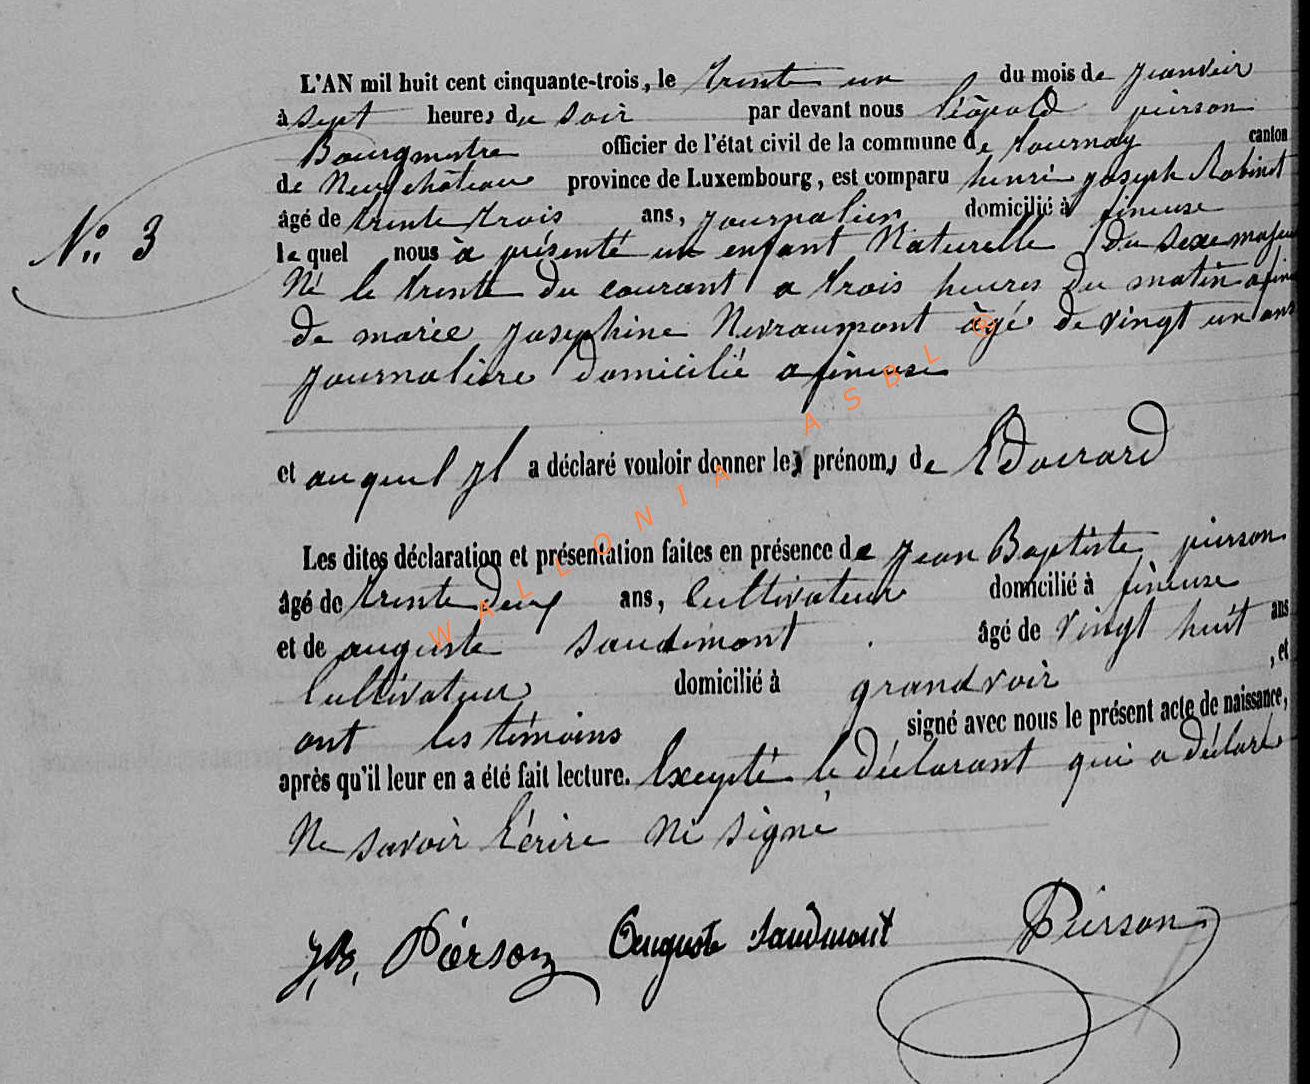 L'AN mil huit cent cinquante-trois, le trente un du mois de Janvier
à sept heures du soir par devant nous Léopold pierson
Bourgmestre officier de l'état civil de la commune de tournay canton
de Neufchâteau province de Luxembourg, est comparu henri joseph Robinet
âgé de trente trois ans, journalier domicilié à fineuse
N° 3
lequel nous à présenté un enfant Naturelle du sexe mascu
Né le trente du courant a trois heures du matin a fine
de marie josephine Nevraumont àgé de vingt un ans
journaliere domicilié a fineuse
et auquel jl a déclaré vouloir donner les prénoms de Edouard
Les dites déclaration et présentation faites en présence de jean Baptiste pierson
âgé de trente deux ans, Cultivateur domicilié à fineuse
et de auguste saudmont âgé de vingt huit ans
Cultivateur domicilié à grandvoir , et
ont les témoins signé avec nous le présent acte de naissance,
après qu'il leur en a été fait lecture. Excepté le déclarant qui a déclaré
Ne savoir Écrire Ni signé
J.B. Pierson Auguste Saudmont Pierson
WALLONIA ASBL ®